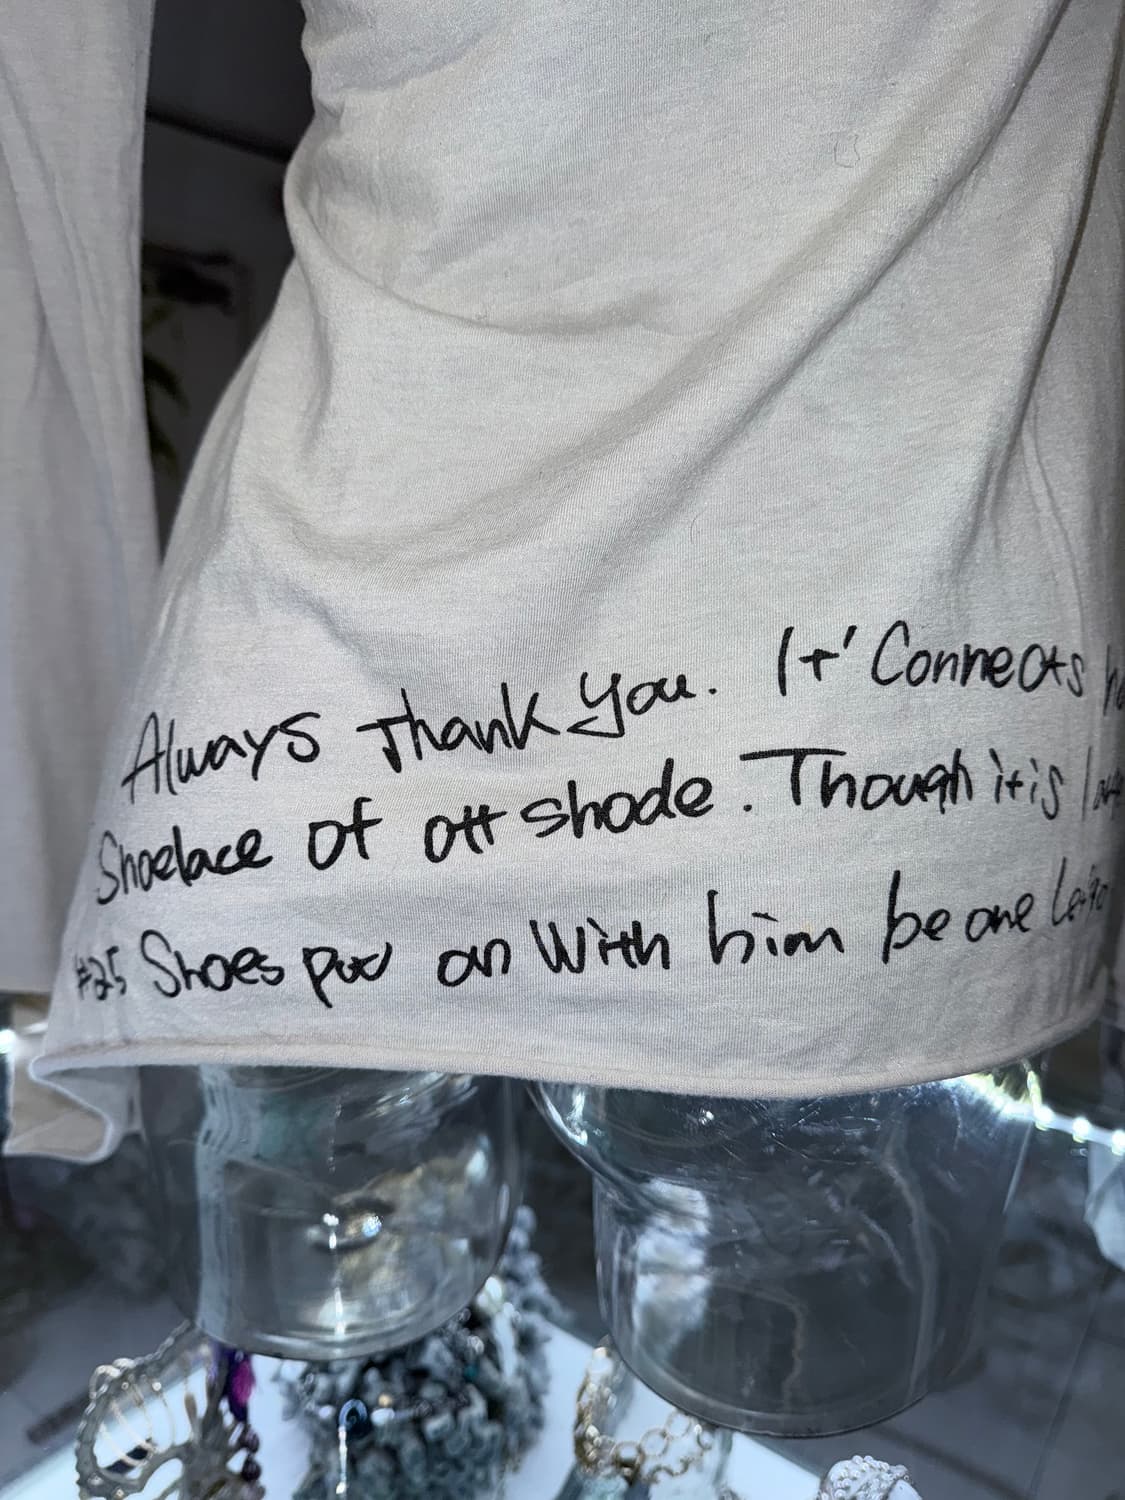 Always Thank you. It' Connects
Shoelace of off shade. Though it is
#25 Shoes pod on With him be one